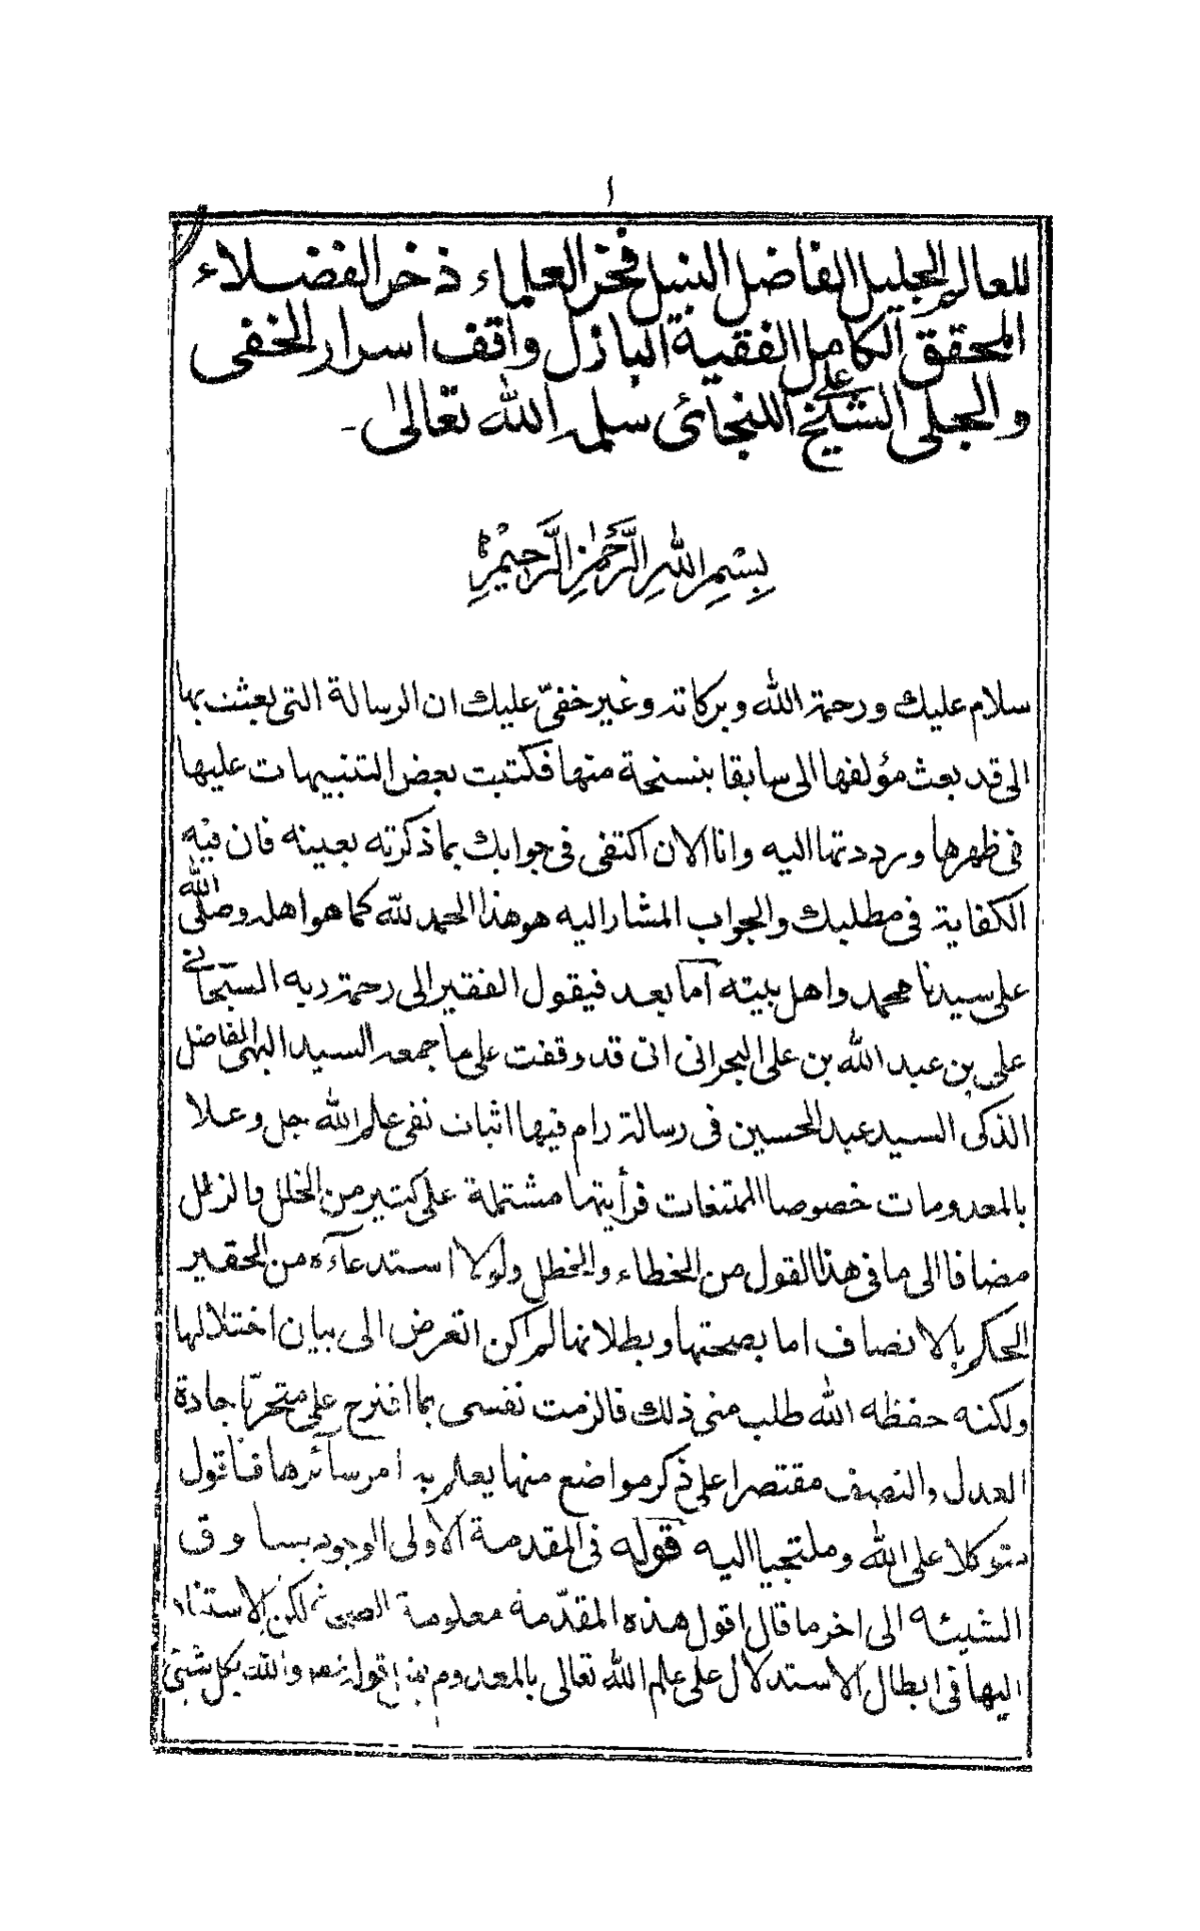 ١
للعالم الجليل الفاضل النبيل فخر العلماء ذخر الفضلاء
المحقق الكامل الفقيه البازل واقف اسرار الخفى
والجلى الشيخ على اللنجائى سلمه الله تعالى۔
بِسْمِ اللهِ الرَّحْمٰنِ الرَّحِيْمِ
سلام عليك ورحمة الله وبركاته وغير خفىّ عليك ان الرسالة التى بعثت بها
الى قد بعث مؤلفها الى سابقا بنسخة منها فكتبت بعض التنبيهات عليها
فى ظهرها ورددتها اليه وانا الان اكتفى فى جوابك بما ذكرته بعينه فان فيه
الكفاية فى مطلبك والجواب المشار اليه هو هذا الحمد لله كما هو اهله وصلى الله
على سيدنا محمد واهل بيته اما بعد فيقول الفقير الى رحمة ربه السبحانى
على بن عبد الله بن على البحرانى انى قد وقفت على ما جمعه السيد البهى الفاضل
الذكى السيد عبد الحسين فى رسالة رام فيها اثبات نفى علم الله جل وعلا
بالمعدومات خصوصا الممتنعات فرأيتها مشتملة على كثير من الخلل والزلل
مضافا الى ما فى هذا القول من الخطاء والخطل ولولا استدعآءه من الحقير
الحكم بالانصاف اما بصحتها وبطلانها لم اكن اتعرض الى بيان اختلالها
ولكنه حفظه الله طلب منى ذلك فالزمت نفسى بما اقترح على متحريّا جادة
العدل والنصف مقتصرا على ذكر مواضع منها يعلم به امر سآئرها فاقول
متوكلا على الله وملتجيا اليه قوله فى المقدمة الاولى الوجود يساوق
الشيئه الى اخر ما قال اقول هذه المقدّمة معلومة لكن الاستناد
اليها فى ابطال الاستدلال على علم الله تعالى بالمعدوم والله بكل شئ